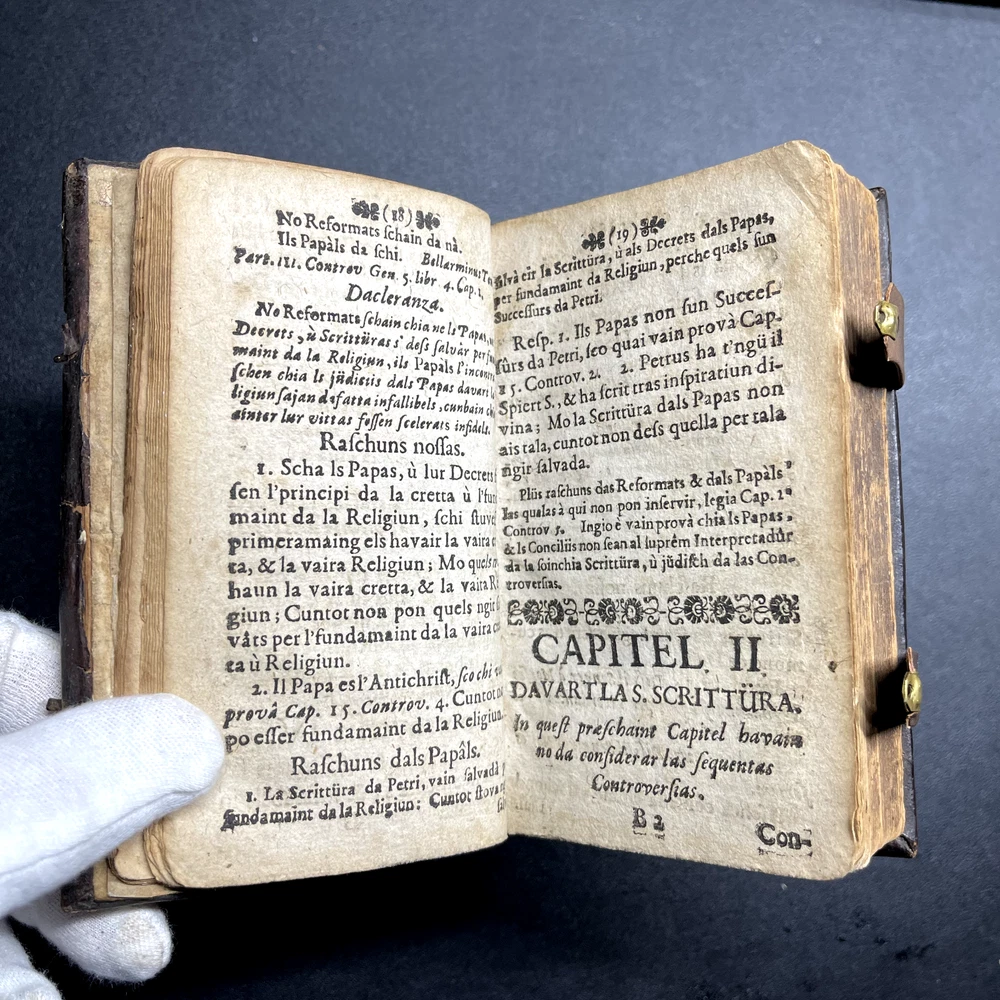 (18)
No Reformats ſchain da nâ.
Ils Papàls da ſchi. Bellarminus
Part. III. Controv Gen. 5. libr 4. Cap. 1.
Dacleranza.
No Reformats ſchain chia ne ls Papas,
Decrets, ù Scrittüras s' deſs ſalvàr per
maint da la Religiun, ils Papàls l'incont
ſchen chia ls jüdicis dals Papas davart
ligiun ſajan d'fatta infallibels, cunbain
ainter lur vittas foſſen ſcelerats infidels.
Raſchuns noſſas.
1. Scha ls Papas, ù lur Decrets
ſen l'principi da la cretta ù l'fun
maint da la Religiun, ſchi ſtuve
primeramaing els havair la vaira
ta, & la vaira Religiun; Mo quels
haun la vaira cretta, & la vaira R
giun; Cuntot non pon quels ngir
vâts per l'fundamaint da la vaira
ta ù Religiun.
2. Il Papa es l'Antichriſt, ſco chi
provâ Cap. 15. Controv. 4. Cuntot
po eſſer fundamaint da la Religiun.
Raſchuns dals Papâls.
1. La Scrittüra da Petri, vain ſalvadâ
fundamaint da la Religiun: Cuntot
(19)
ſalvà eir la Scrittüra, ù als Decrets dals Papas,
per fundamaint da Religiun, perche quels ſun
Succeſſurs da Petri.
Reſp. 1. Ils Papas non ſun Succeſ-
ſûrs da Petri, ſco quai vain provà Cap.
15. Controv. 2. 2. Petrus ha t'ngü il
Spiert S., & ha ſcrit tras inſpiratiun di-
vina; Mo la Scrittüra dals Papas non
ais tala, cuntot non deſs quella per tala
ngir ſalvada.
Plüs raſchuns das Reformats & dals Papàls
las qualas à qui non pon inſervir, legia Cap. 1
Controv 5. Ingio è vain provà chia ls Papas,
& ls Conciliis non ſean al ſuprêm Interpretadûr
da la ſoinchia Scrittüra, ù jüdiſch da las Con-
troverſias.
CAPITEL II
DAVART LA S. SCRITTÜRA.
In queſt præſchaint Capitel havain
no da conſiderar las ſequentas
Controverſias.
B 2
Con-